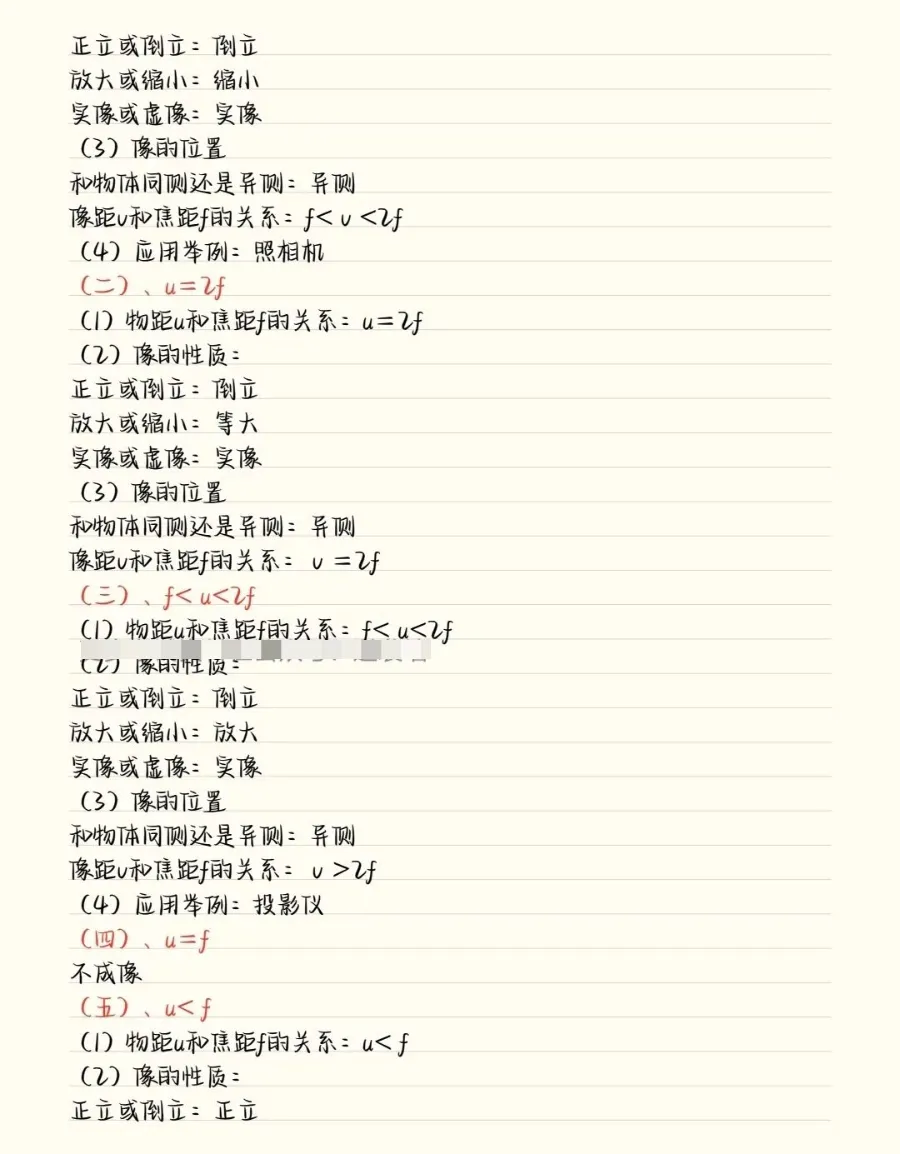 正立或倒立：倒立
放大或缩小：缩小
实像或虚像：实像
（3）像的位置
和物体同侧还是异侧：异侧
像距v和焦距f的关系：f< v <2f
（4）应用举例：照相机
（二）、u=2f
（1）物距u和焦距f的关系：u=2f
（2）像的性质：
正立或倒立：倒立
放大或缩小：等大
实像或虚像：实像
（3）像的位置
和物体同侧还是异侧：异侧
像距v和焦距f的关系： v =2f
（三）、f< u<2f
（1）物距u和焦距f的关系：f< u<2f
（2）像的性质：
正立或倒立：倒立
放大或缩小：放大
实像或虚像：实像
（3）像的位置
和物体同侧还是异侧：异侧
像距v和焦距f的关系： v >2f
（4）应用举例：投影仪
（四）、u=f
不成像
（五）、u< f
（1）物距u和焦距f的关系：u< f
（2）像的性质：
正立或倒立：正立